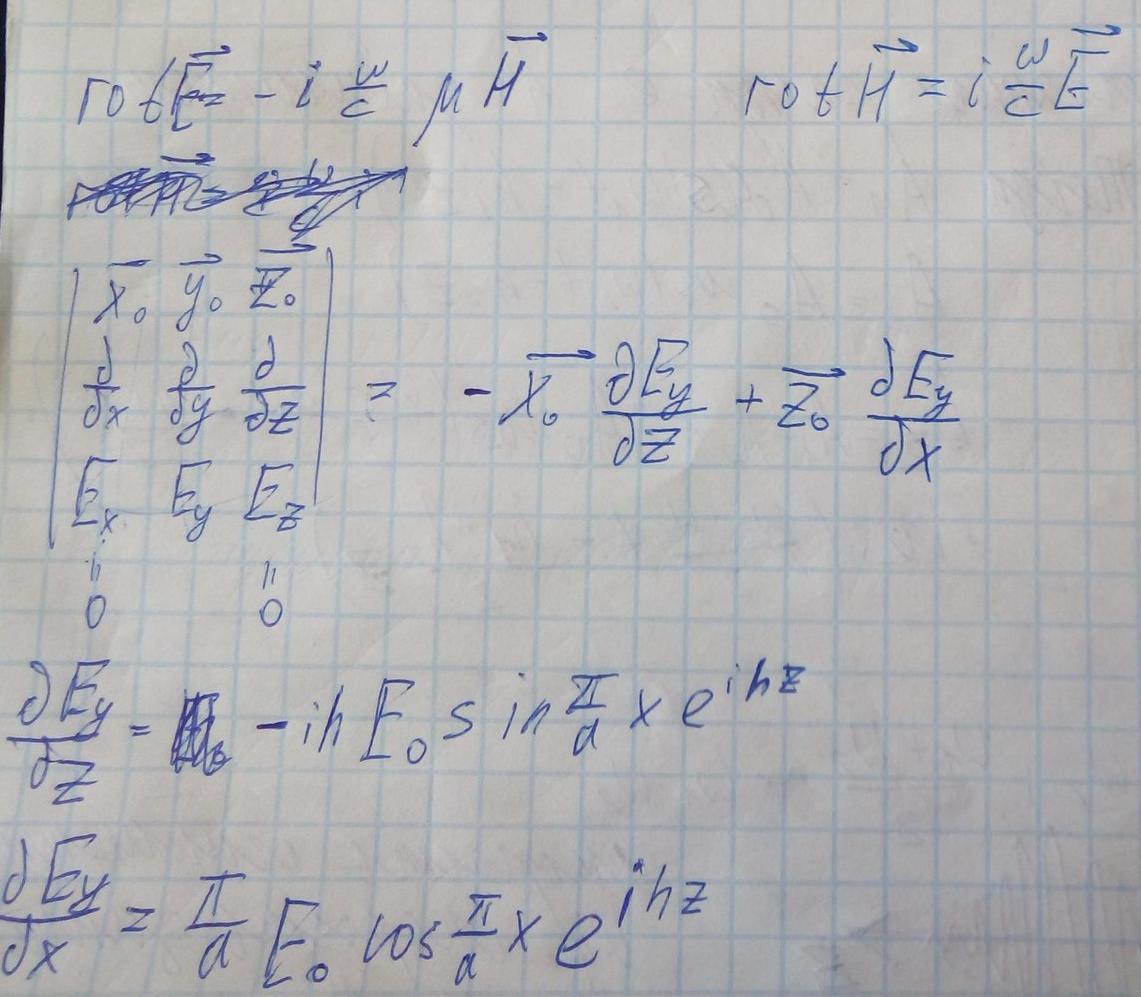 rot E⃗ = - i ω/c μ H⃗ rot H⃗ = i ω/c E⃗
| x⃗₀ y⃗₀ z⃗₀ |
| ∂/∂x ∂/∂y ∂/∂z | = - x⃗₀ ∂Ey/∂z + z⃗₀ ∂Ey/∂x
| Ex Ey Ez |
= =
0 0
∂Ey/∂z = - ih E₀ sin π/a x e^{ihz}
∂Ey/∂x = π/a E₀ cos π/a x e^{ihz}